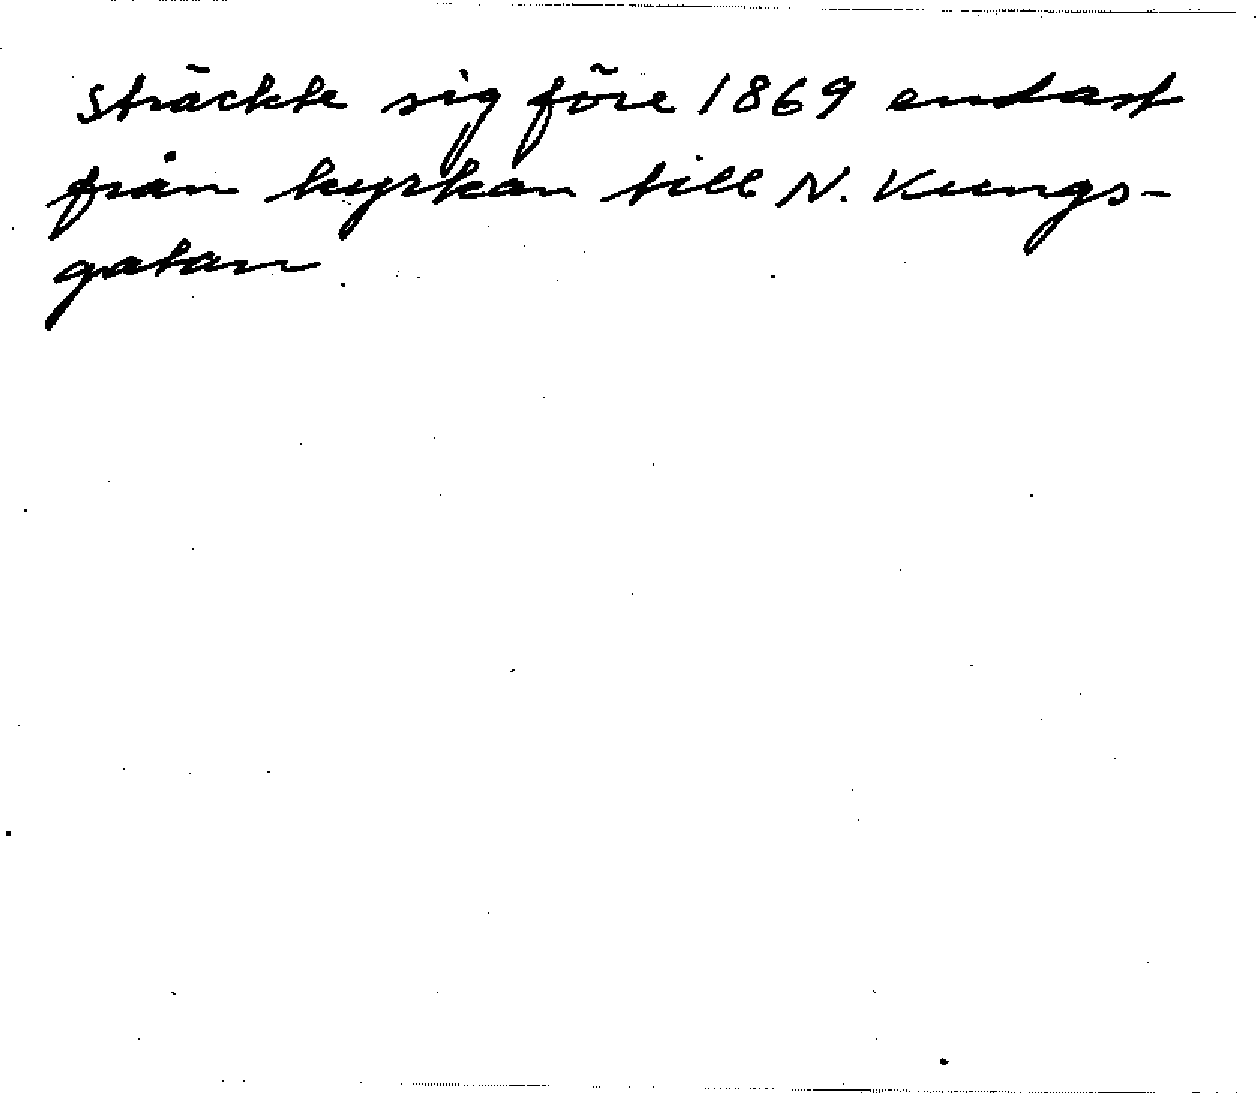 Sträckte sig före 1869 endast
från kyrkan till N. Kungs-
gatan